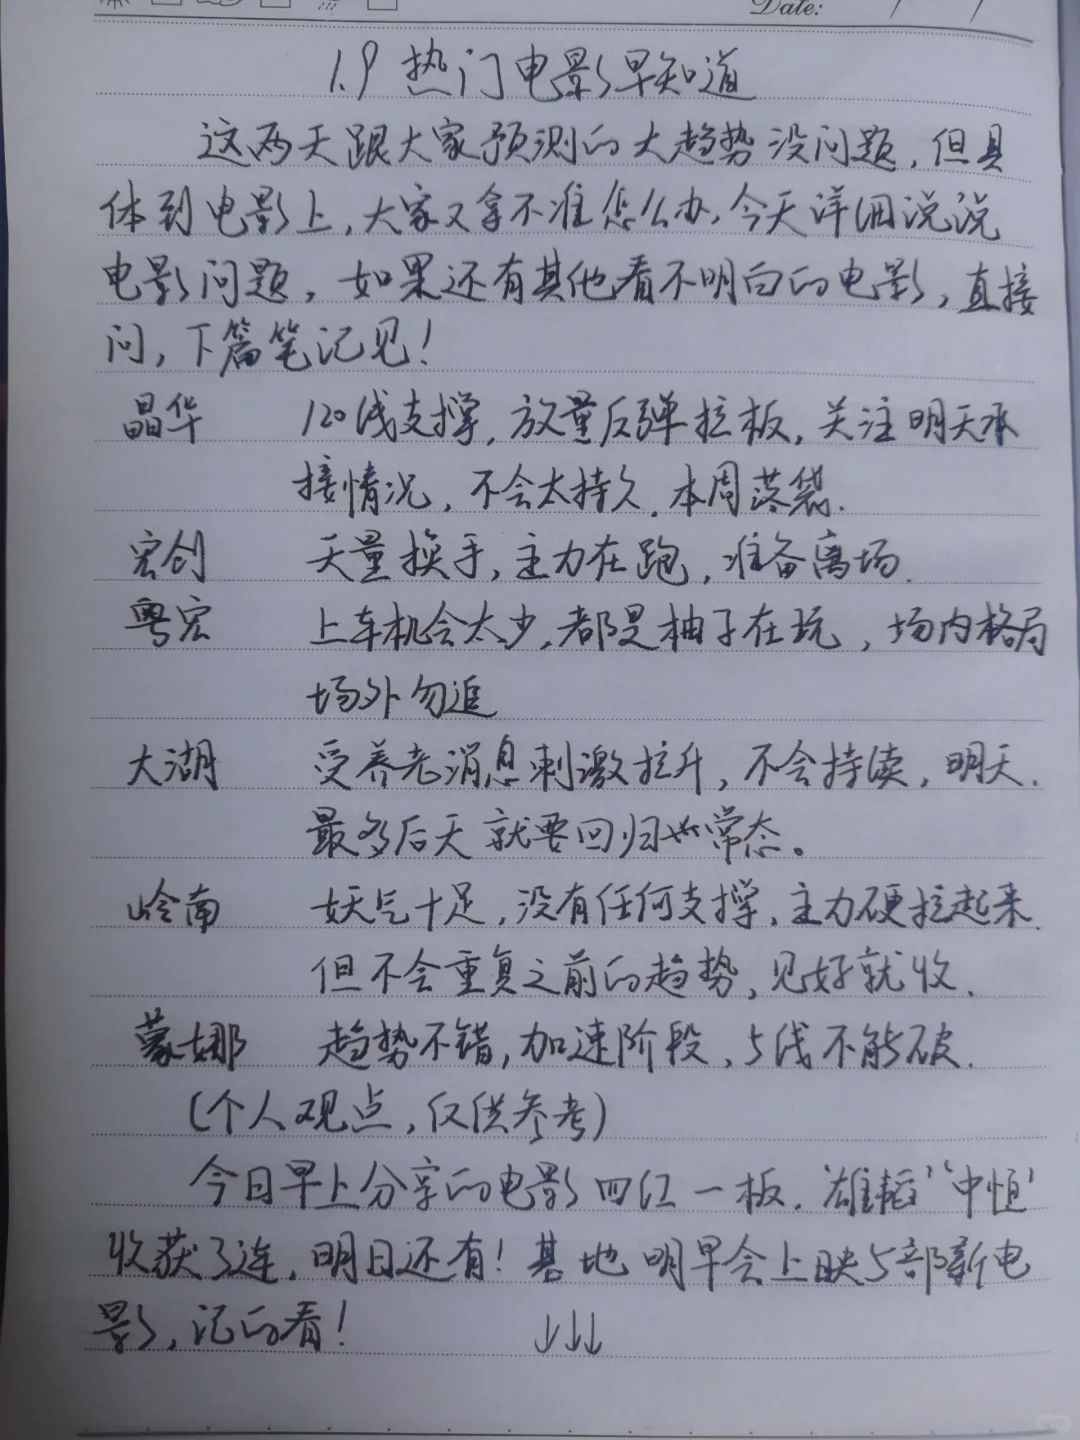 Date: / /
1.9 热门电影早知道
这两天跟大家预测的大趋势没问题,但具
体到电影上,大家又拿不准怎么办,今天详细说说
电影问题,如果还有其他看不明白的电影,直接
问,下篇笔记见!
晶华 120线支撑,放量反弹拉板,关注明天承
接情况,不会太持久,本周落袋.
宏创 天量换手,主力在跑,准备离场.
粤宏 上车机会太少,都是柚子在玩,场内格局
场外勿追
大湖 受养老消息刺激拉升,不会持续,明天.
最多后天就要回归常态。
岭南 妖气十足,没有任何支撑,主力硬拉起来.
但不会重复之前的趋势,见好就收.
蒙娜 趋势不错,加速阶段,5线不能破.
(个人观点,仅供参考)
今日早上分享的电影四红一板.雄韬'‘中恒'
收获3连,明日还有!基地明早会上映5部新电
影,记的看! ↓↓↓